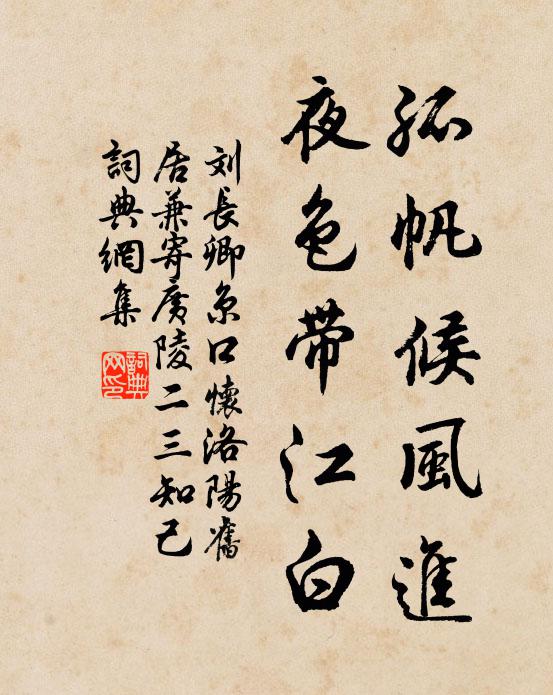 孤帆候風進
夜色帶江白
刘長卿京口懷洛陽舊
居兼寄广陵二三知己
詞典網集
詞典
网印